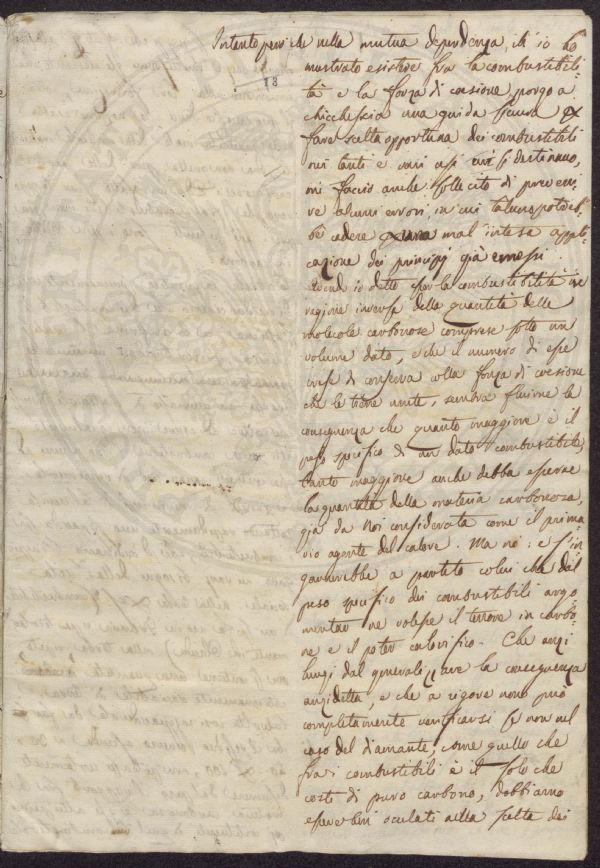 Intanto però che nella mutua dependenza, ch' io ho
mostrato esistere fra la combustibili-
18
tà e la forza di coesione porgo a
chicchessia una guida sicura
fare scelta opportuna dei combustibili
nei tanti e varj usi cui si destinano,
mi faccio anche sollecito di preveni-
re alcuni errori, in cui taluno potreb-
be cadere mal intesa appli-
cazione dei principj già emessi.
Avend' io detto esser la combustibilità in
ragione inversa della quantità delle
molecole carbonose comprese sotto un
volume dato, e che il numero di esse
cresce di conserva colla forza di coesione
che le tiene unite, sembra fluirne la
conseguenza che quanto maggiore è il
peso specifico di un dato combustibile,
tanto maggiore anche debba esserne
la quantità della materia carbonosa,
già da noi considerata come il prima-
rio agente del calore. Ma nò: e s'in-
gannerebbe a partito colui che dal
peso specifico dei combustibili argo-
mentar ne volesse il tenore in carbo-
ne e il poter calorifico. Che anzi
lungi dal generalizzare la conseguenza
anzidetta, e che a rigore non può
completamente verificarsi se non nel
caso del diamante, come quello che
fra i combustibili è il solo che
costi di puro carbono, dobbiamo
esser ben oculati nella scelta dei